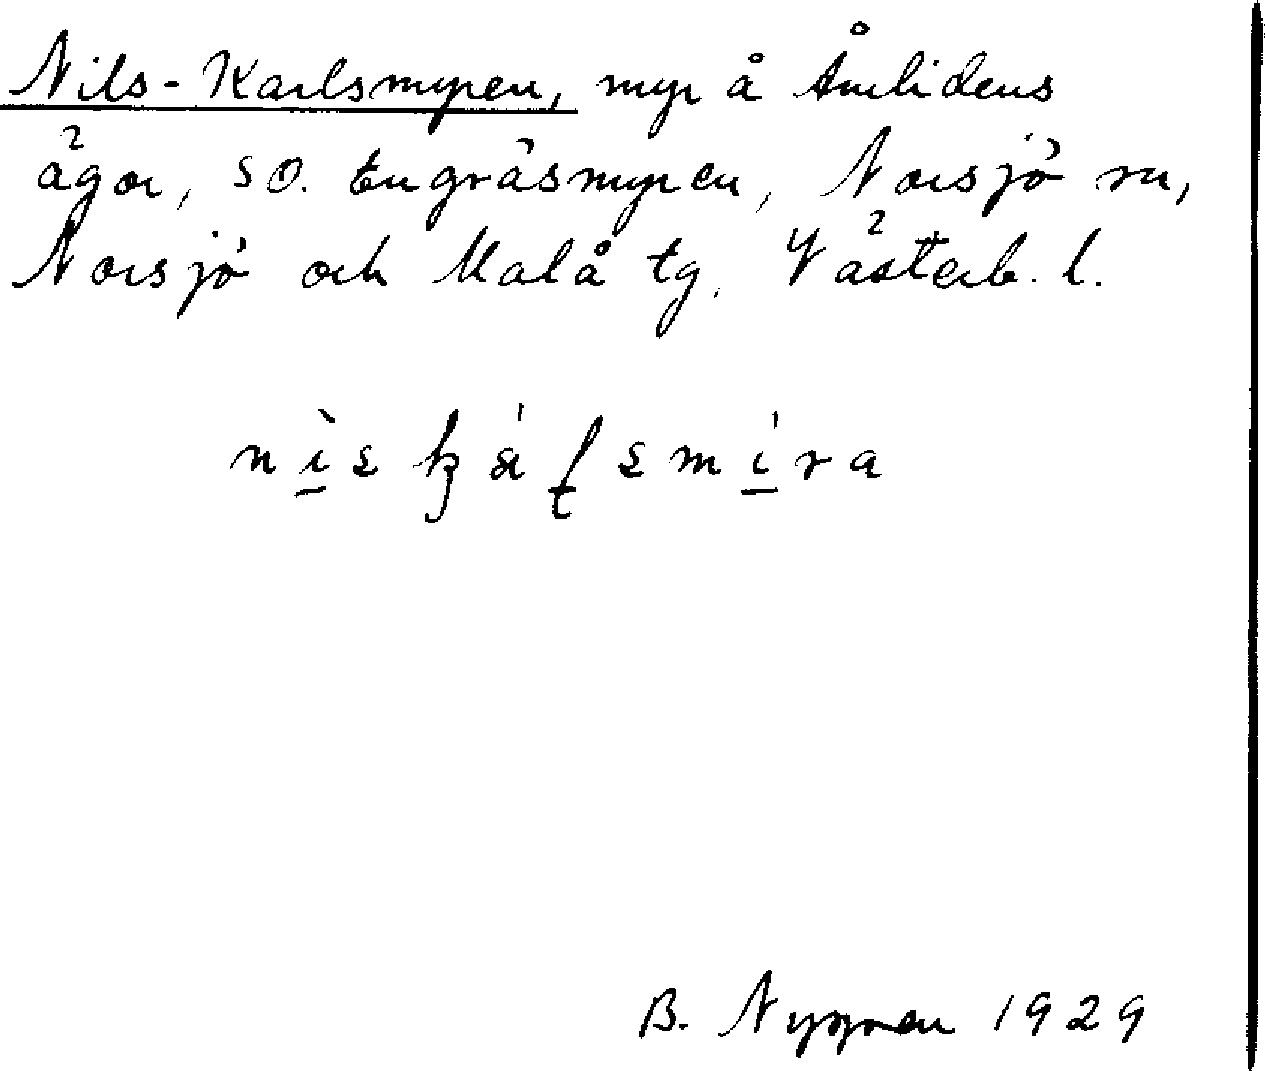 Nils-Karlsmyren, myr å Åmlidens
ägor, SO. Engräsmyren, Norsjö sn,
Norsjö och Malå tg. Västerb. l.
B. Nygren 1929